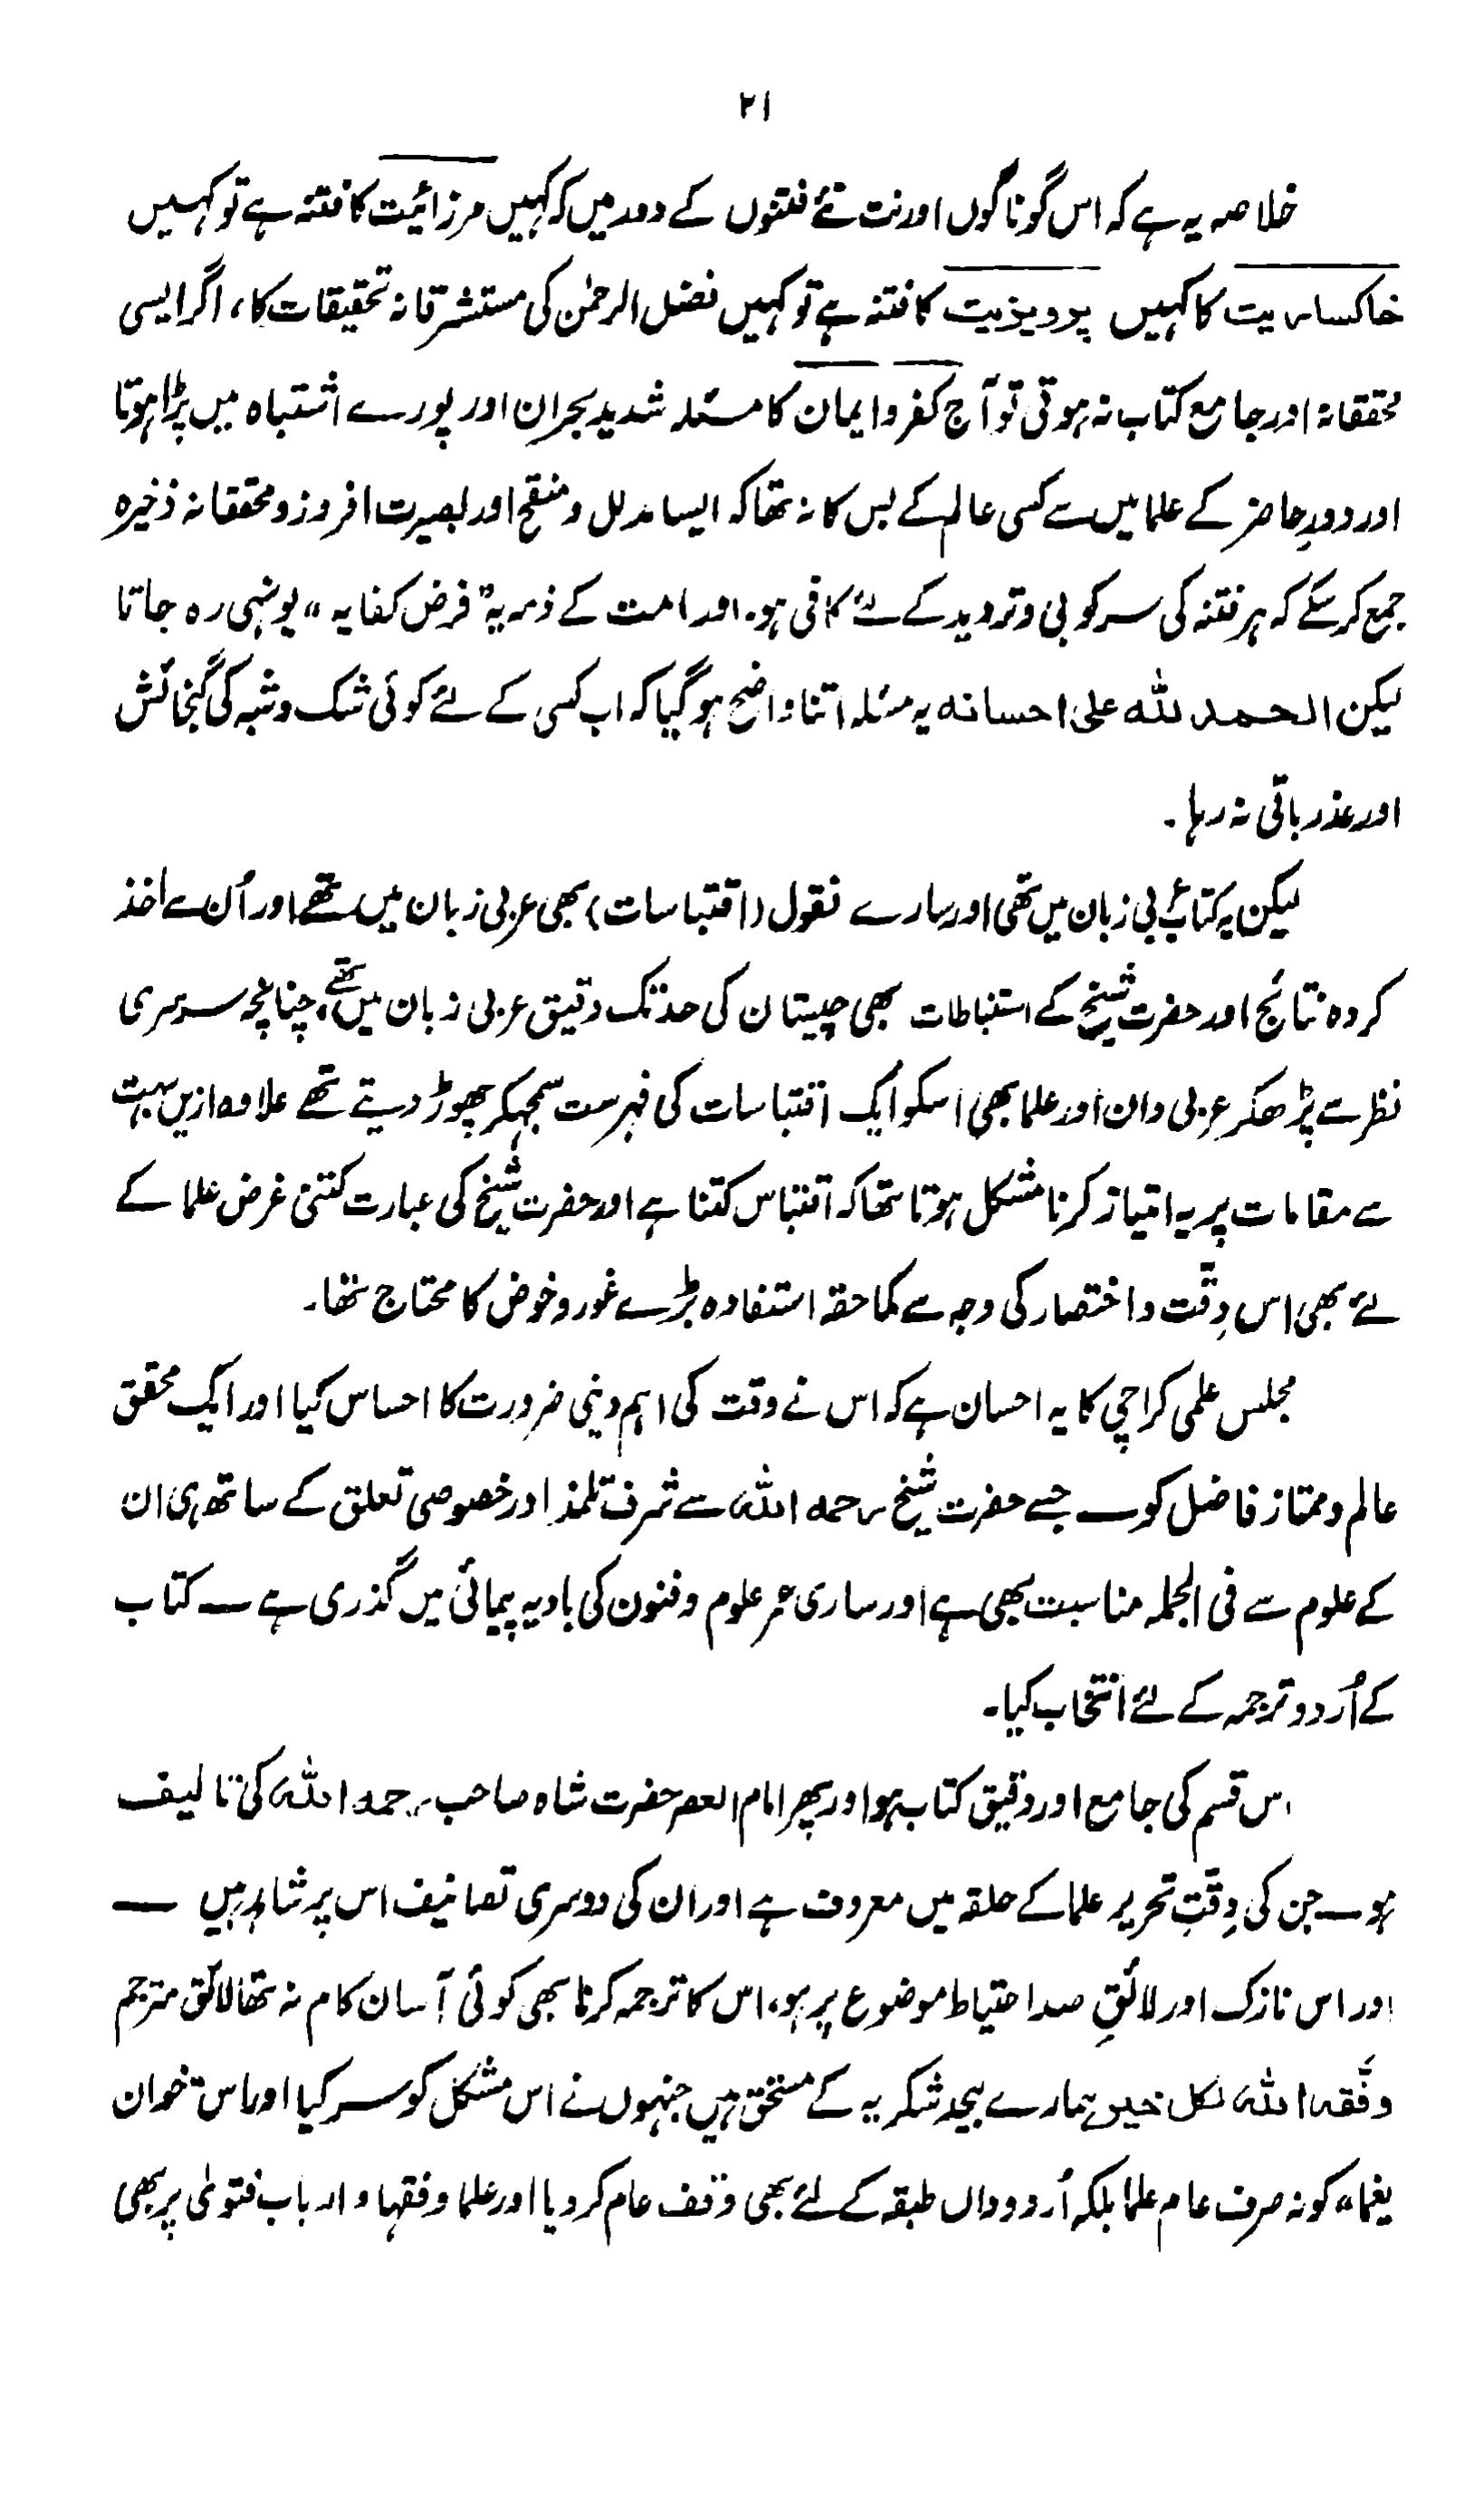 ۲۱
خلاصہ یہ ہے کہ اس گوناگوں اور نت نئے فتنوں کے دور میں کہ کہیں مرزائیت کا فتنہ ہے تو کہیں
خاکساریت کا کہیں پرویزیت کا فتنہ ہے تو کہیں فضل الرحمٰن کی مستشرقانہ تحقیقات کا، اگر ایسی
محققانہ اور جامع کتاب نہ ہوتی تو آج کفر و ایمان کا مسئلہ شدید بحران اور پورے اشتباہ میں پڑا ہوتا
اور دورِ حاضر کے علما میں سے کسی عالم کے بس کا نہ تھا کہ ایسا مدلل و منقح اور بصیرت افروز و محققانہ ذخیرہ
جمع کر سکے کہ ہر فتنہ کی سرکوبی و تردید کے لئے کافی ہو۔ اور امت کے ذمہ یہ "فرض کفایہ" یونہی رہ جاتا
لیکن الحمد للہ علی احسانہ یہ مسئلہ اتنا واضح ہو گیا کہ اب کسی کے لئے کوئی شک و شبہ کی گنجائش
اور عذر باقی نہ رہا۔
لیکن یہ کتاب عربی زبان میں تھی اور سارے نقول (اقتباسات) بھی عربی زبان میں تھے اور اُن سے اخذ
کردہ نتائج اور حضرت شیخ کے استنباطات بھی چیستان کی حد تک دقیق عربی زبان میں تھے، چنانچہ سرسری
نظر سے پڑھکر عربی دان اور علما بھی اسکو ایک اقتباسات کی فہرست سمجھکر چھوڑ دیتے تھے علاوہ ازیں بہت
سے مقامات پر یہ امتیاز کرنا مشکل ہوتا تھا کہ اقتباس کتنا ہے اور حضرت شیخ کی عبارت کتنی غرض علما کے
لئے بھی اس دِقّت و اختصار کی وجہ سے کماحقہ استفادہ بڑے غور و خوض کا محتاج تھا۔
مجلس علمی کراچی کا یہ احسان ہے کہ اس نے وقت کی اہم دینی ضرورت کا احساس کیا اور ایک محقق
عالم و ممتاز فاضل کو ـــ جسے حضرت شیخ رحمہ اللہ سے شرف تلمذ اور خصوصی تعلق کے ساتھ ہی ان
کے علوم سے فی الجملہ مناسبت بھی ہے اور ساری عمر علوم و فنون کی بادیہ پیمائی میں گذری ہے ـــ کتاب
کے اُردو ترجمہ کے لئے انتخاب کیا۔
اس قسم کی جامع اور دقیق کتاب ہو اور پھر امام العصر حضرت شاہ صاحب رحمہ اللہ کی تالیف
ہو ـــ جن کی دِقّتِ تحریر علما کے حلقہ میں معروف ہے اور ان کی دوسری تصانیف اس پر شاہد ہیں ـــ
اور اس نازک اور لائقِ صد احتیاط موضوع پر ہو، اس کا ترجمہ کرنا بھی کوئی آسان کام نہ تھا لائق مترجم
وفّقہ اللہ لکل خیر ہمارے بیحد شکریہ کے مستحق ہیں جنہوں نے اس مشکل کو سر کیا اور اس "خوان
یغما" کو نہ صرف عام علما بلکہ اُردو داں طبقہ کے لئے بھی وقف عام کر دیا اور علما و فقہا و ارباب فتویٰ پر بھی